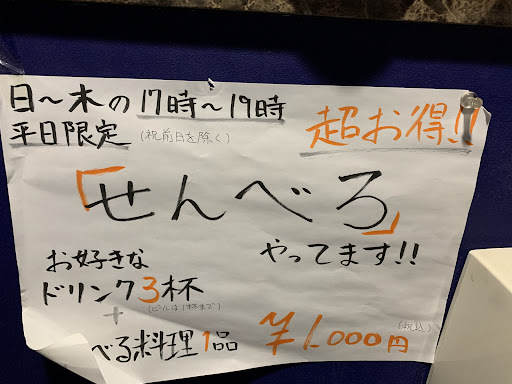 日〜木の17時〜19時
平日限定 (祝前日を除く)
超お得!!
「せんべろ」
やってます!!
お好きな
ドリンク3杯
(ビールは1杯まで)
+
べる料理1品
¥1,000円
(税込)